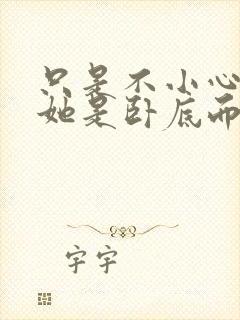 只是不小心
她是卧底而
宇宇